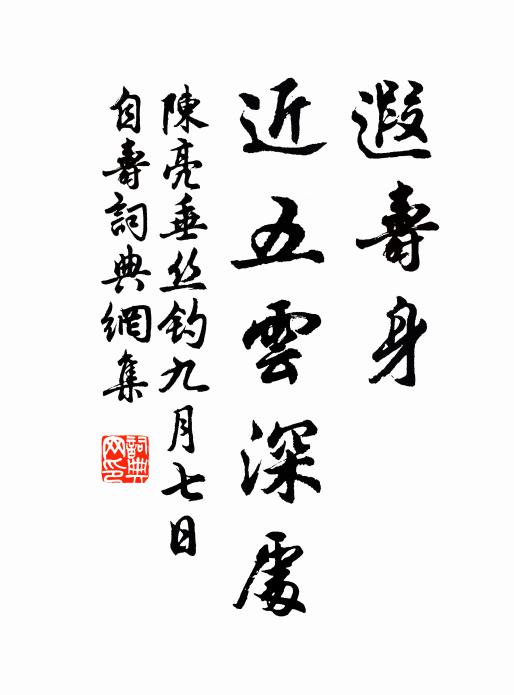 遐壽身
近五雲深處
陳亮垂丝钓九月七日
自壽詞典網集
詞典
网印